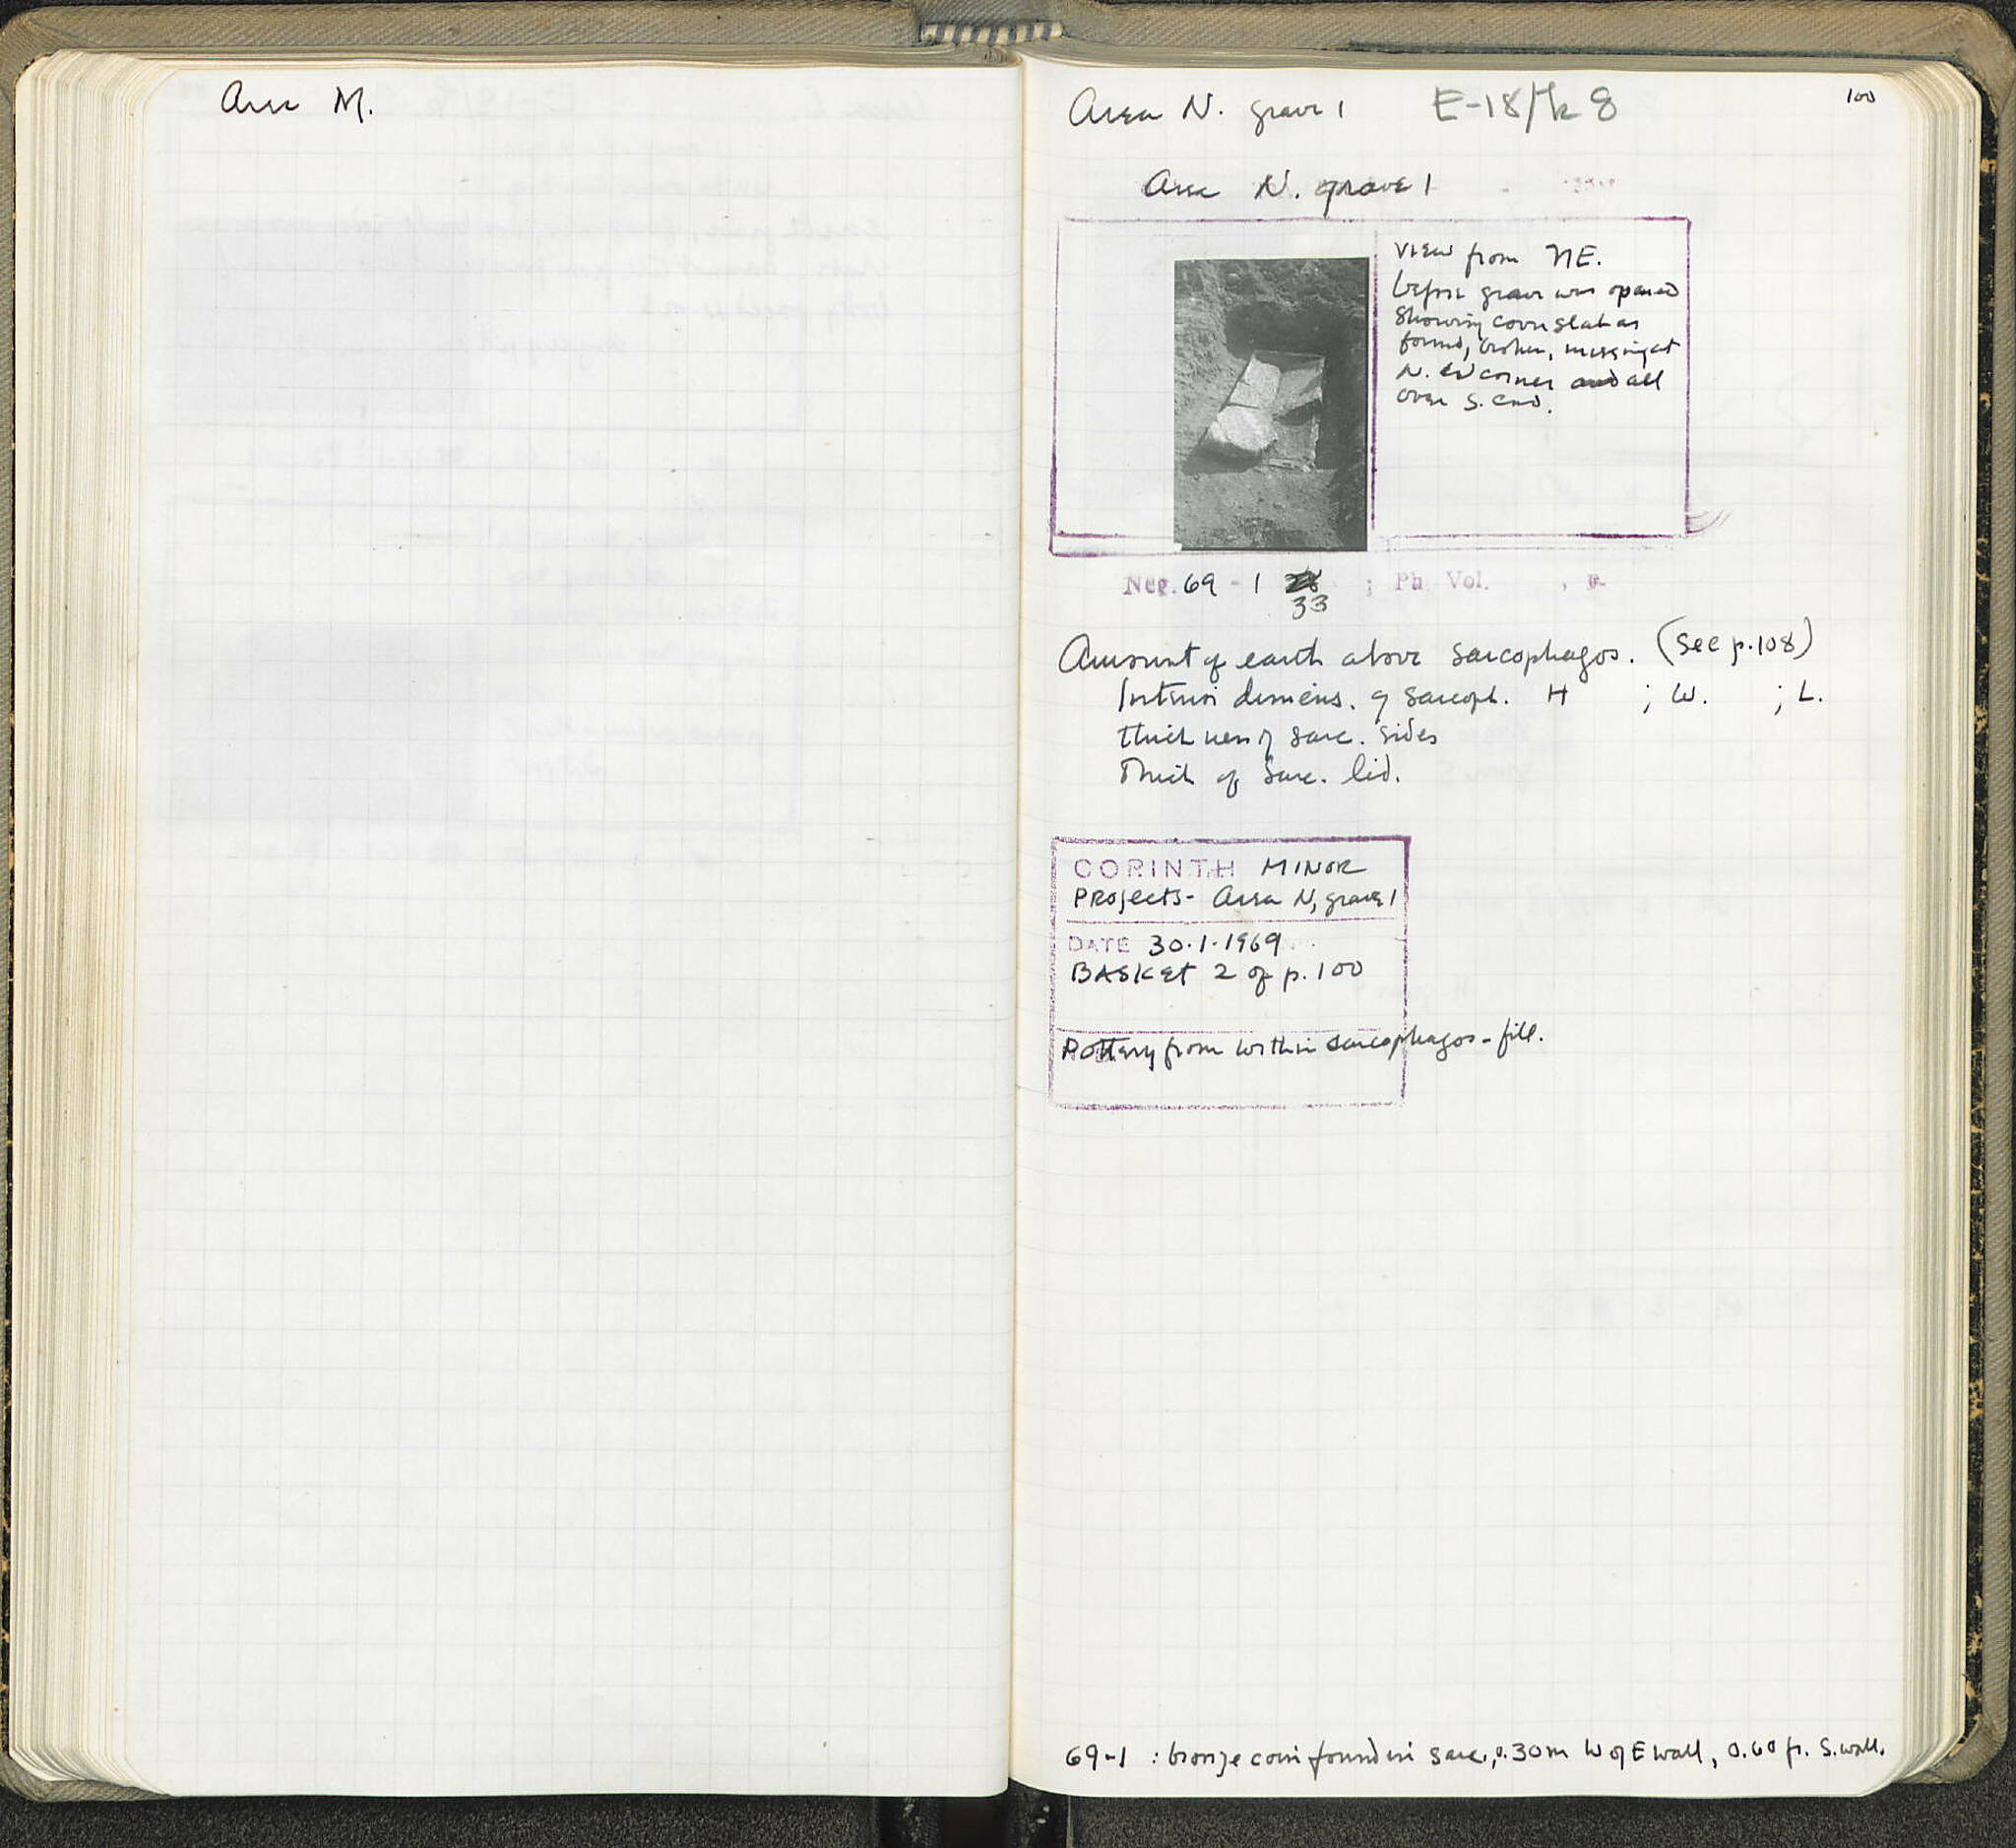 Area M.
Area N. grave 1 E-18/k 8
100
Area N. grave 1
View from NE.
before grave was opened
showing cover slab as
found, broken, missing at
N. W corner and all
over S. end.
Neg. 69 - 1 ; Ph. Vol. , p.
33
Amount of earth above sarcophagos. (see p.108)
Interior dimens. of sarcoph. H ; W. ; L.
thickness of sarc. sides
Thick of Sarc. lid.
CORINTH MINOR
PROJECTS- Area N, grave 1
DATE 30.1.1969
BASKET 2 of p.100
Pottery from within sarcophagos - fill.
69-1 : bronze coin found in sarc., 0.30m W of E wall, 0.60 fr. S. wall.